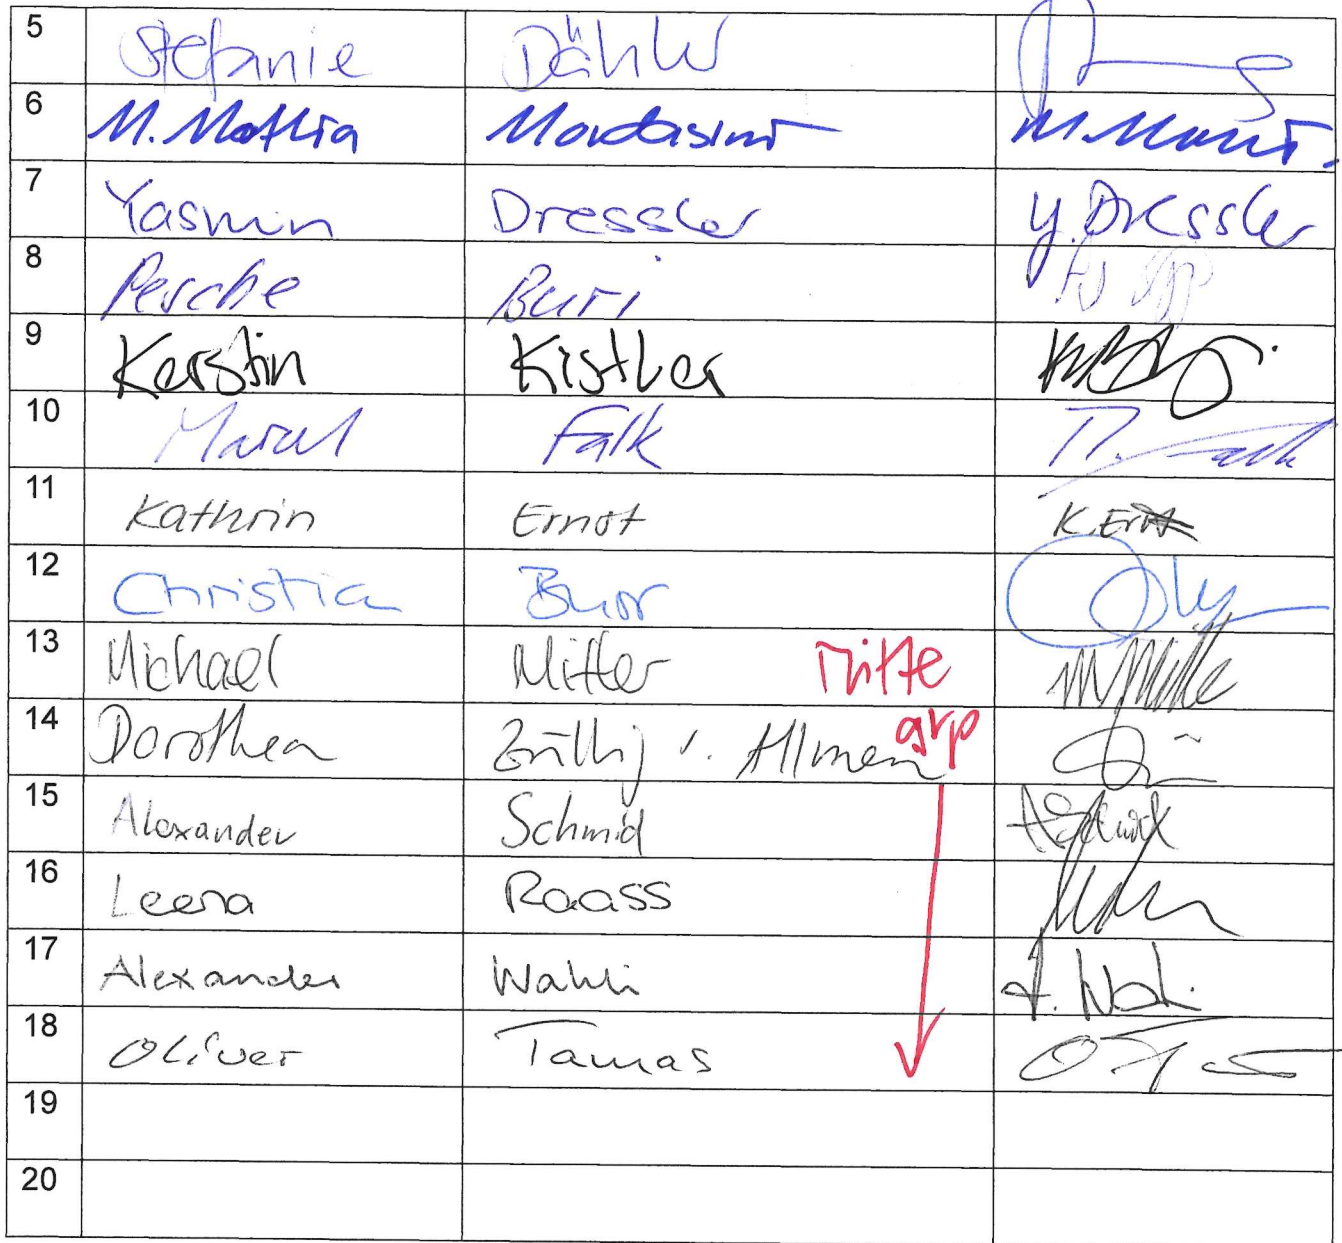 5 Stefanie Dähler
6 M. Mattia Mordasini
7 Yasmin Dressler Y. Dressler
8 Pesche Buri
9 Kerstin Kistler
10 Marcel Falk M. Falk
11 Kathrin Ernst K. Ernst
12
13 Michael Mitter Mitte
14 Dorothea Züllig v. Allmen grp
15 Alexander Schmid A Schmid
16 Leena Raass
17 Alexander Wahli A. Wahli
18 Oliver Tamas
19
20